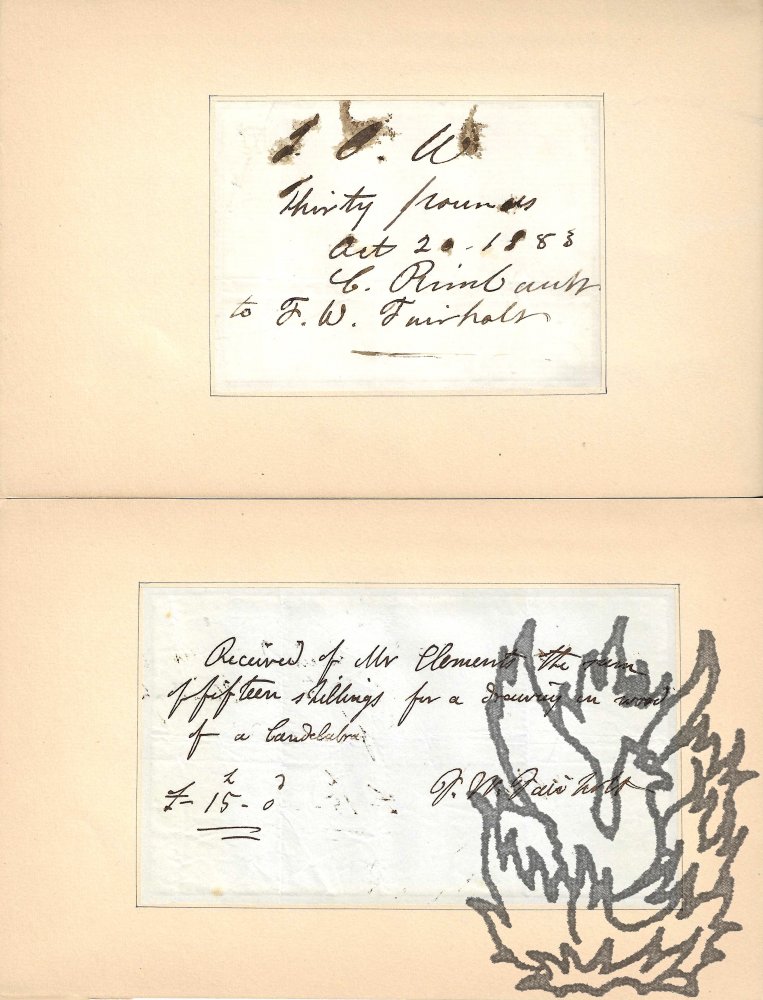 I. O. W
Thirty pounds
Oct 20 - 1883
C. Rimbault
to F. W. Fairholt
Received of Mr Clements the sum
of fifteen shillings for a drawing on wood
of a Candelabra
£ - 15 - 0
F. W. Fairholt